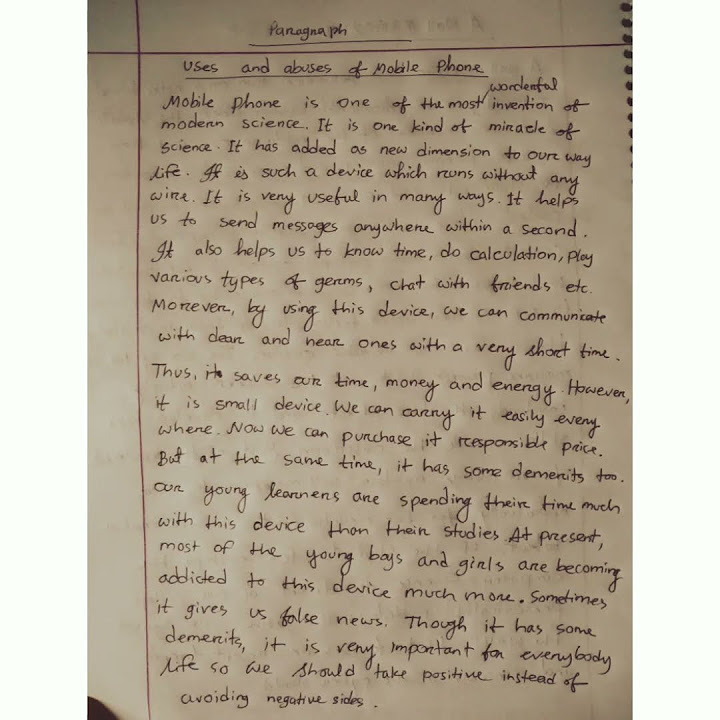 Paragraph
Uses and abuses of Mobile Phone
wonderful
Mobile phone is one of the most invention of
modern science. It is one kind of miracle of
science. It has added as new dimension to our way
life. It is such a device which runs without any
wire. It is very useful in many ways. It helps
us to send messages anywhere within a second.
It also helps us to know time, do calculation, play
various types of germs, chat with friends etc.
Moreover, by using this device, we can communicate
with dear and near ones with a very short time.
Thus, it saves our time, money and energy. However,
it is small device. We can carry it easily every
where. Now we can purchase it responsible price.
But at the same time, it has some demerits too.
Our young learners are spending their time much
with this device than their studies. At present,
most of the young boys and girls are becoming
addicted to this device much more. Sometimes
it gives us false news. Though it has some
demerits, it is very important for everybody
life so we should take positive instead of
avoiding negative sides.